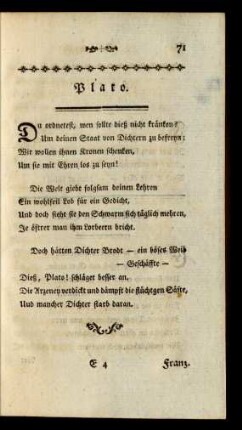 71
Plato.
Du ordnetest, wen sollte dieß nicht kränken?
Um deinen Staat von Dichtern zu befreyn:
Wir wollen ihnen Kronen schenken,
Um sie mit Ehren los zu seyn!
Die Welt giebt folgsam deinen Lehren
Ein wohlfeil Lob für ein Gedicht,
Und doch sieht sie den Schwarm sich täglich mehren,
Je öftrer man ihm Lorbeern bricht.
Doch hätten Dichter Brodt — ein böses Weib
— Geschäffte —
Dieß, Plato! schlüger besser an.
Die Arzeney verdickt und dämpft die flüchtgen Säfte,
Und mancher Dichter starb daran.
E 4
Franz.